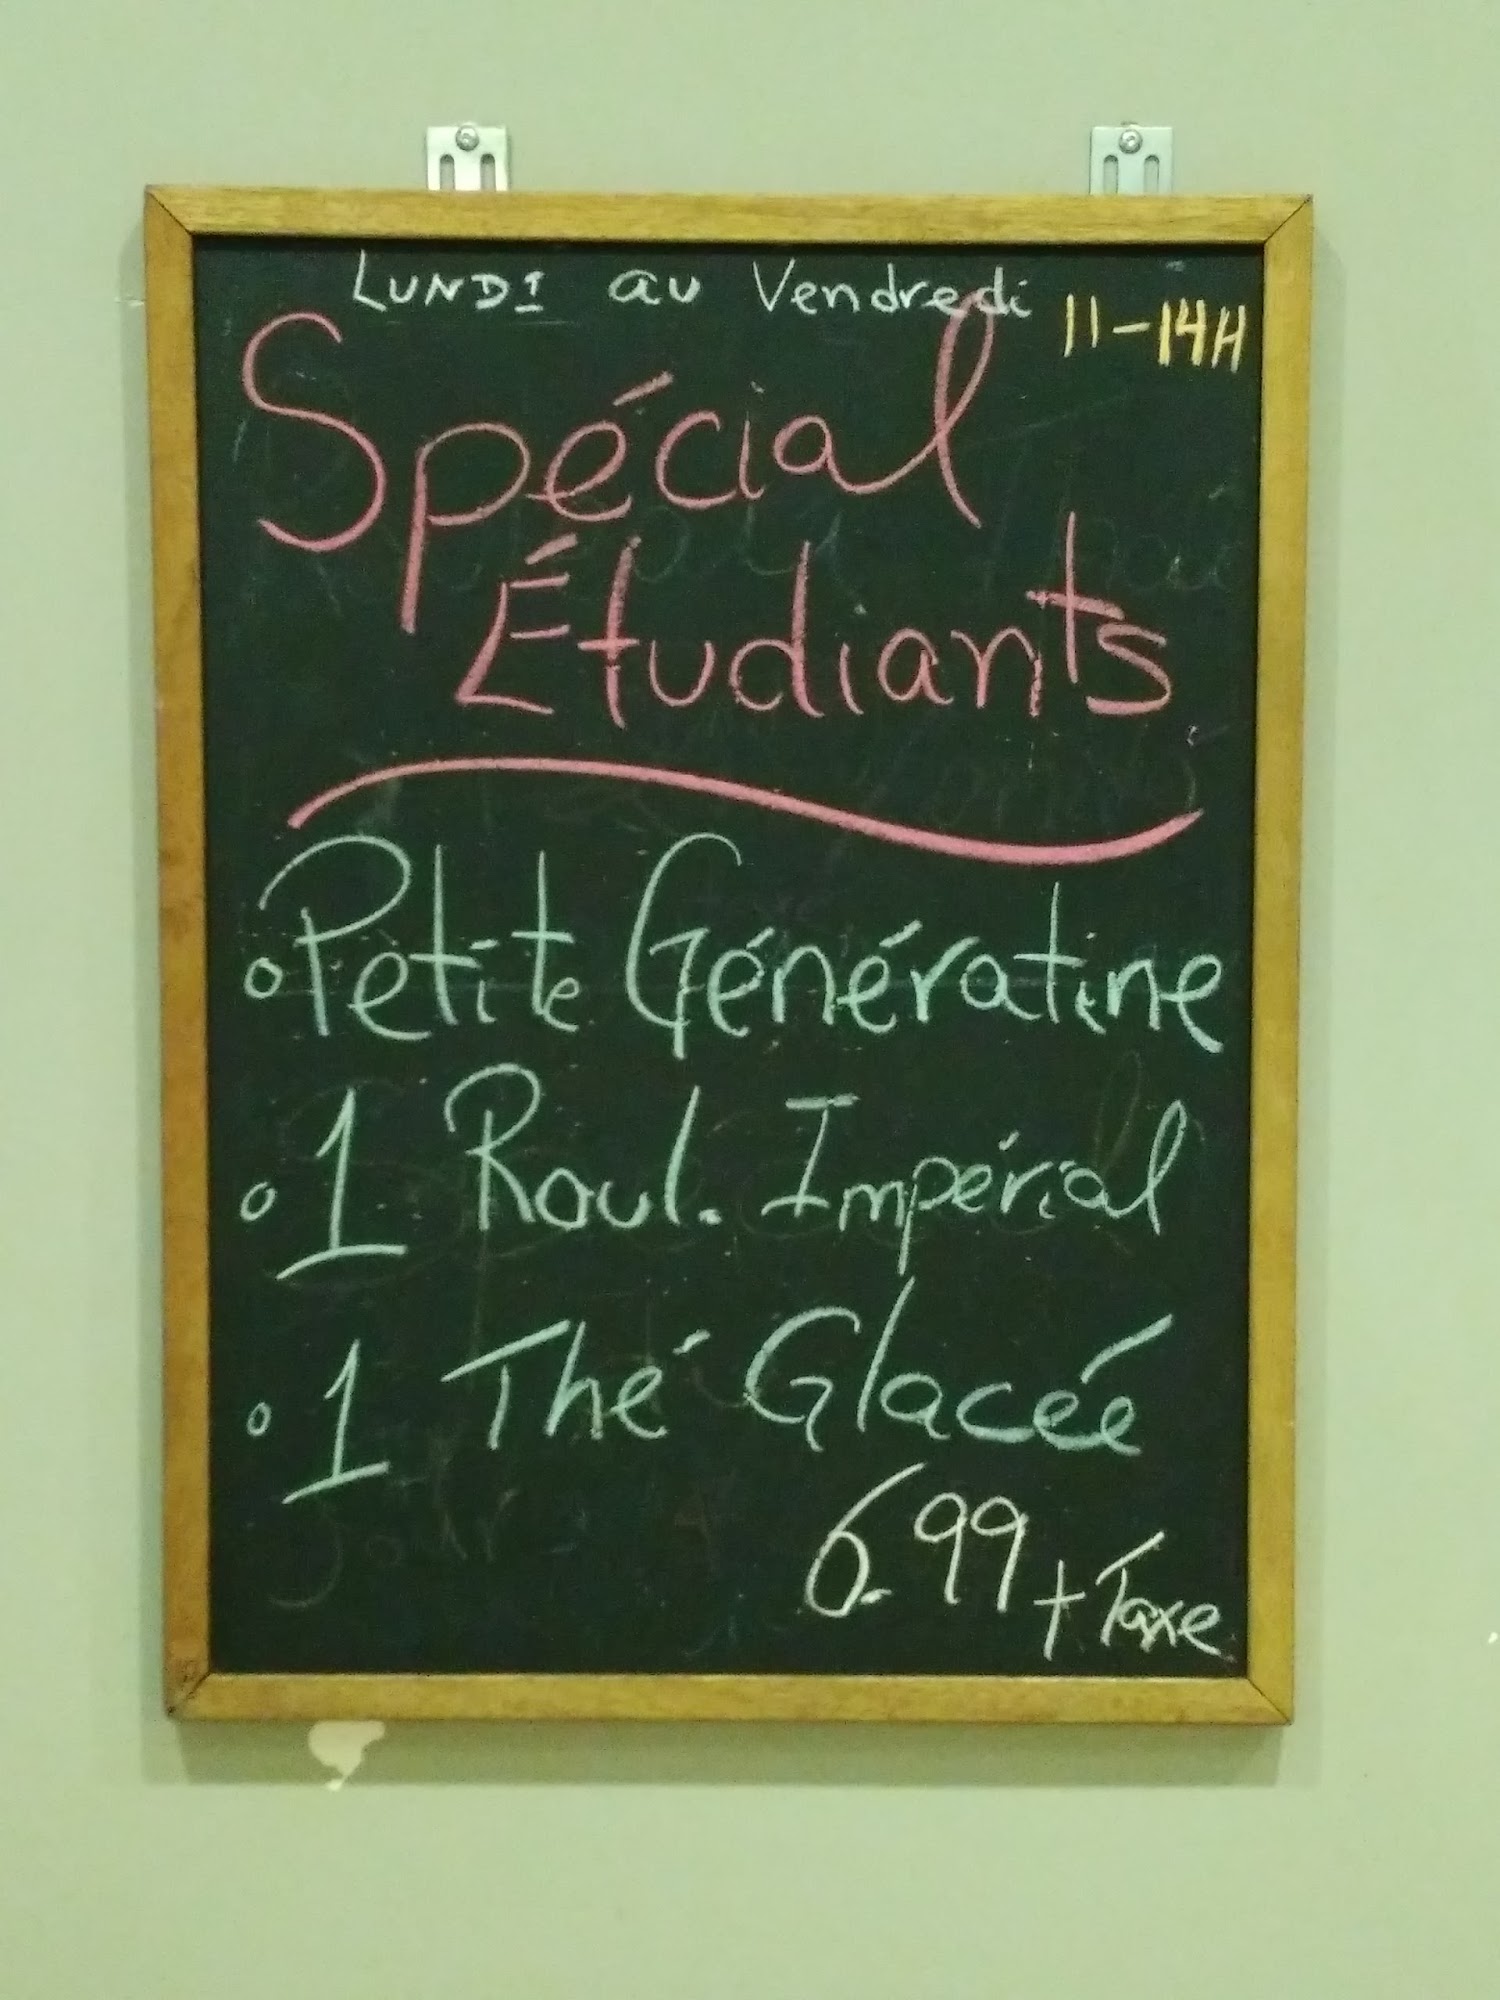 Lundi au Vendredi 11-14H
Spécial
Étudiants
Petite Génératine
1 Roul. Impérial
1 Thé Glacée
6.99 + Taxe